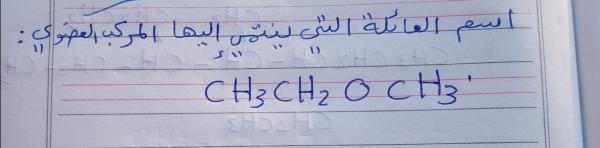 اسم العائلة التي ينتمي إليها المركب العضوي :
CH3CH2 O CH3